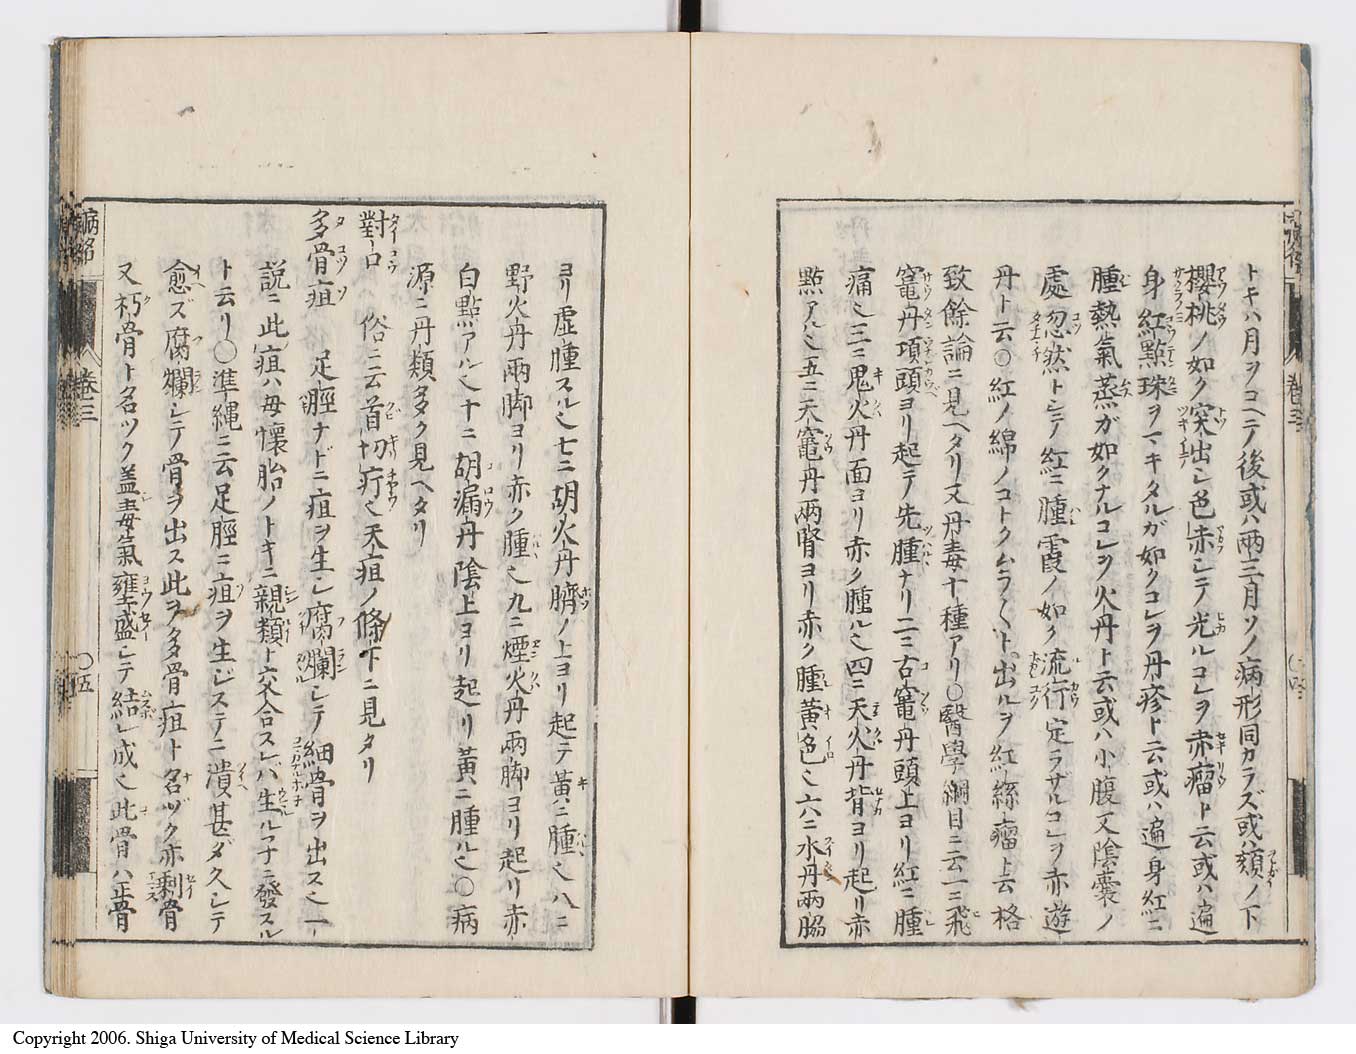 トキハ月ヲコヘテ後或ハ兩三月ソノ病形同カラズ或ハ頬ノ下
櫻桃ノ如ク突出シ色赤シテ光ルコレヲ赤瘤ト云或ハ遍
身紅點珠ヲマキタルガ如クコレヲ丹疹ト云或ハ遍身紅ニ
腫熱氣蒸ガ如クナルコレヲ火丹ト云或ハ小腹又陰嚢ノ
處忽然トシテ紅ニ腫霞ノ如ク流行定ラザルコレヲ赤遊
丹ト云○紅ノ綿ノコトクムラ〱ト出ルヲ紅絲瘤ト云格
致餘論ニ見ヘタリ又丹毒十種アリ○醫學綱目ニ云一ニ飛
竈丹項頭ヨリ起テ先腫ナリ二ニ古竈丹頭上ヨリ紅ニ腫
痛也三ニ鬼火丹面ヨリ赤ク腫ル也四ニ天火丹背ヨリ起リ赤
點アル也五ニ天竈丹兩腎ヨリ赤ク腫黄色也六ニ水丹兩脇
ヨリ虚腫スル也七ニ胡火丹臍ノ上ヨリ起テ黄ニ腫也八ニ
野火丹兩脚ヨリ赤ク腫也九ニ煙火丹兩脚ヨリ起リ赤
白點アル也十ニ胡漏丹陰上ヨリ起リ黄ニ腫ル也○病
源ニ丹類多ク見ヘタリ
對口 俗ニ云首切疔也天疽ノ條下ニ見タリ
多骨疽 足脛ナドニ疽ヲ生シ腐爛シテ細骨ヲ出ス也一
説ニ此疽ハ母懷胎ノトキニ親類ト交合スレバ生ルヽ子ニ發スル
ト云リ○準縄ニ云足脛ニ疽ヲ生ジステニ潰甚ダ久シテ
愈ズ腐爛シテ骨ヲ出ス此ヲ多骨疽ト名ヅク亦剩骨
又朽骨ト名ツク盖毒氣壅盛シテ結シ成也此骨ハ正骨
病名
卷三
○五